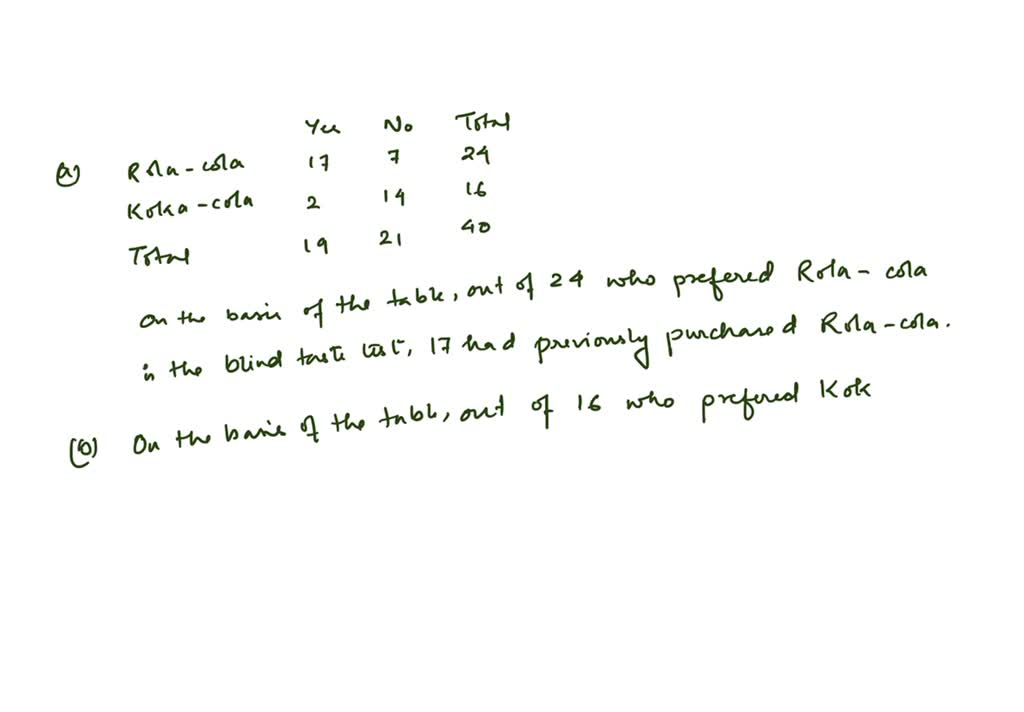 Yes No Total
(a) Rola-cola 17 7 24
Koka-cola 2 14 16
Total 19 21 40
On the basis of the table, out of 24 who prefered Rola-cola
in the blind taste test, 17 had previously purchased Rola-cola.
(b) On the basis of the table, out of 16 who prefered Kok